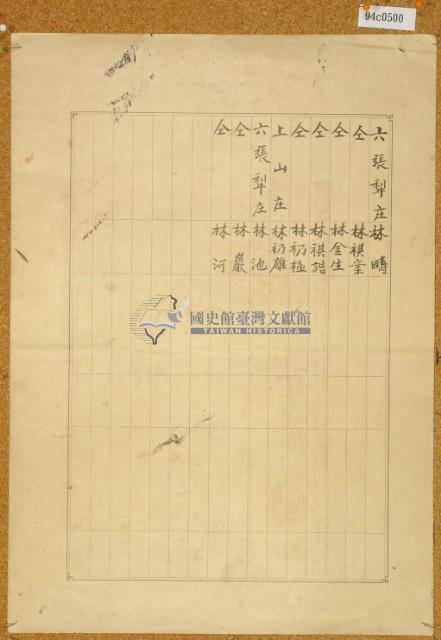 94c0500
六張犁庄 林疇
仝 林祺業
仝 林金生
仝 林祺誥
仝 林礽極
上山庄 林礽雄
六張犁庄 林池
仝 林嚴
仝 林河
國史館臺灣文獻館
TAIWAN HISTORICA